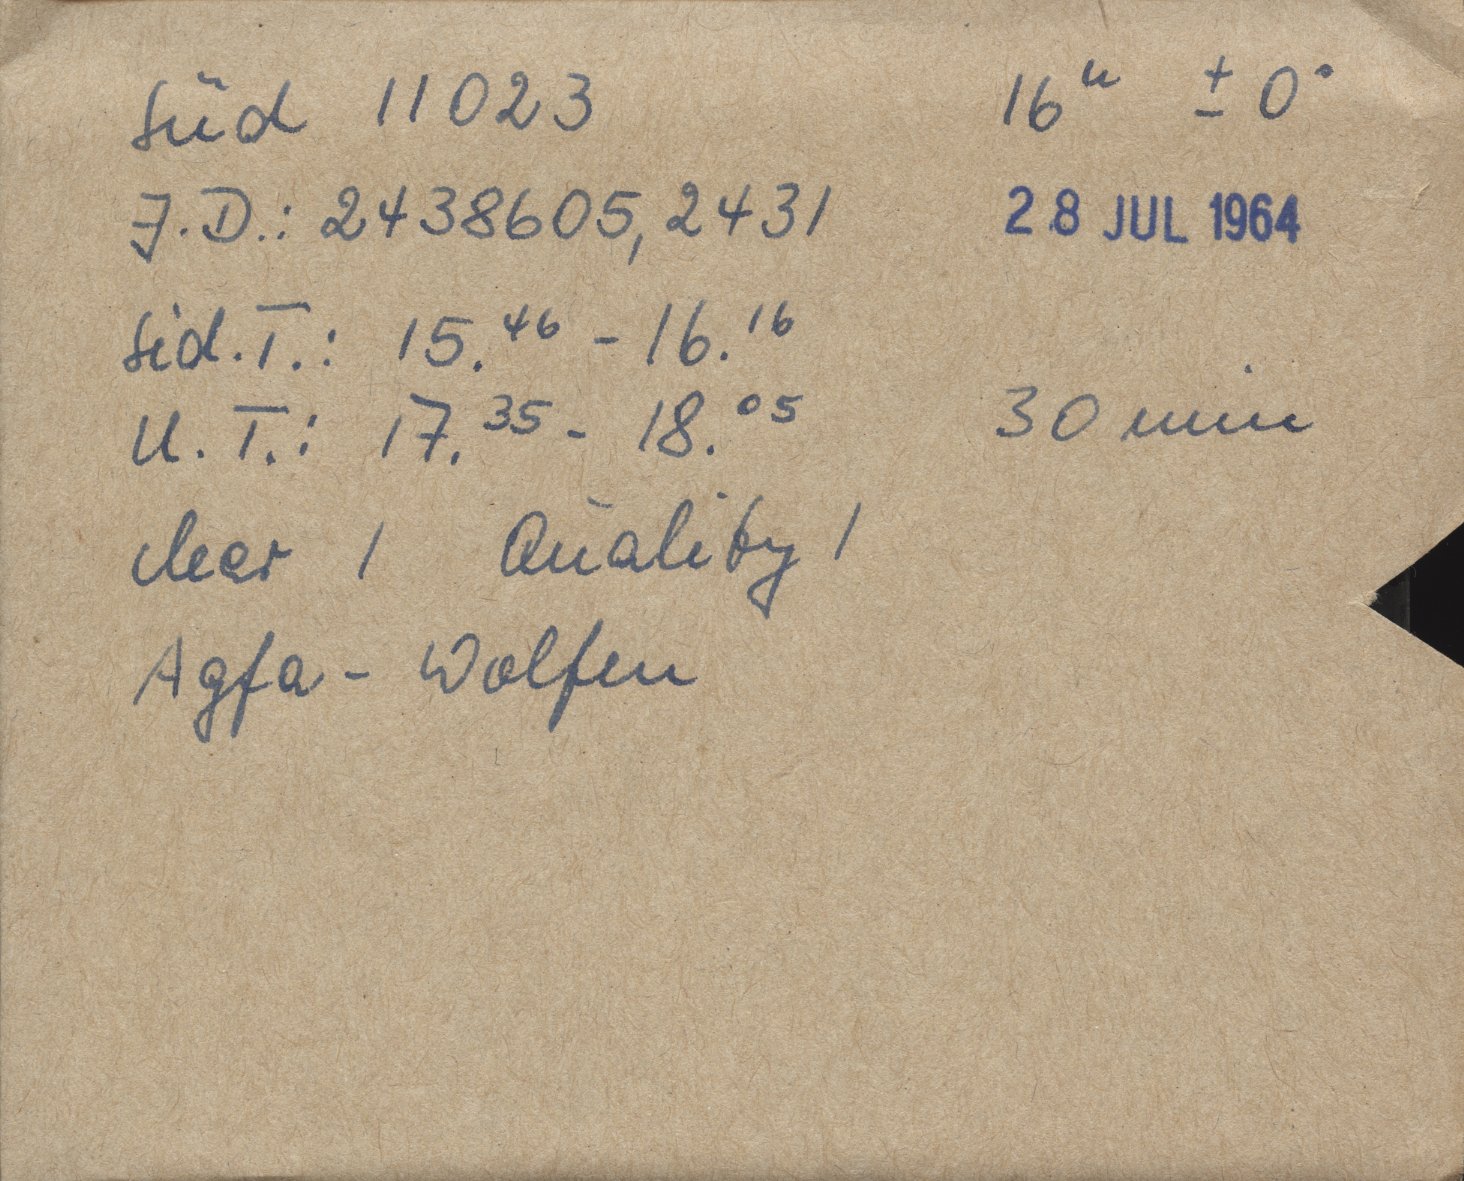 Süd 11023 16ʰ ± 0°
J.D.: 2438605,2431 28 JUL 1964
Sid.T.: 15.⁴⁶ - 16.¹⁶
U.T.: 17.³⁵ - 18.⁰⁵ 30 min
clear 1 Quality 1
Agfa - Wolfen